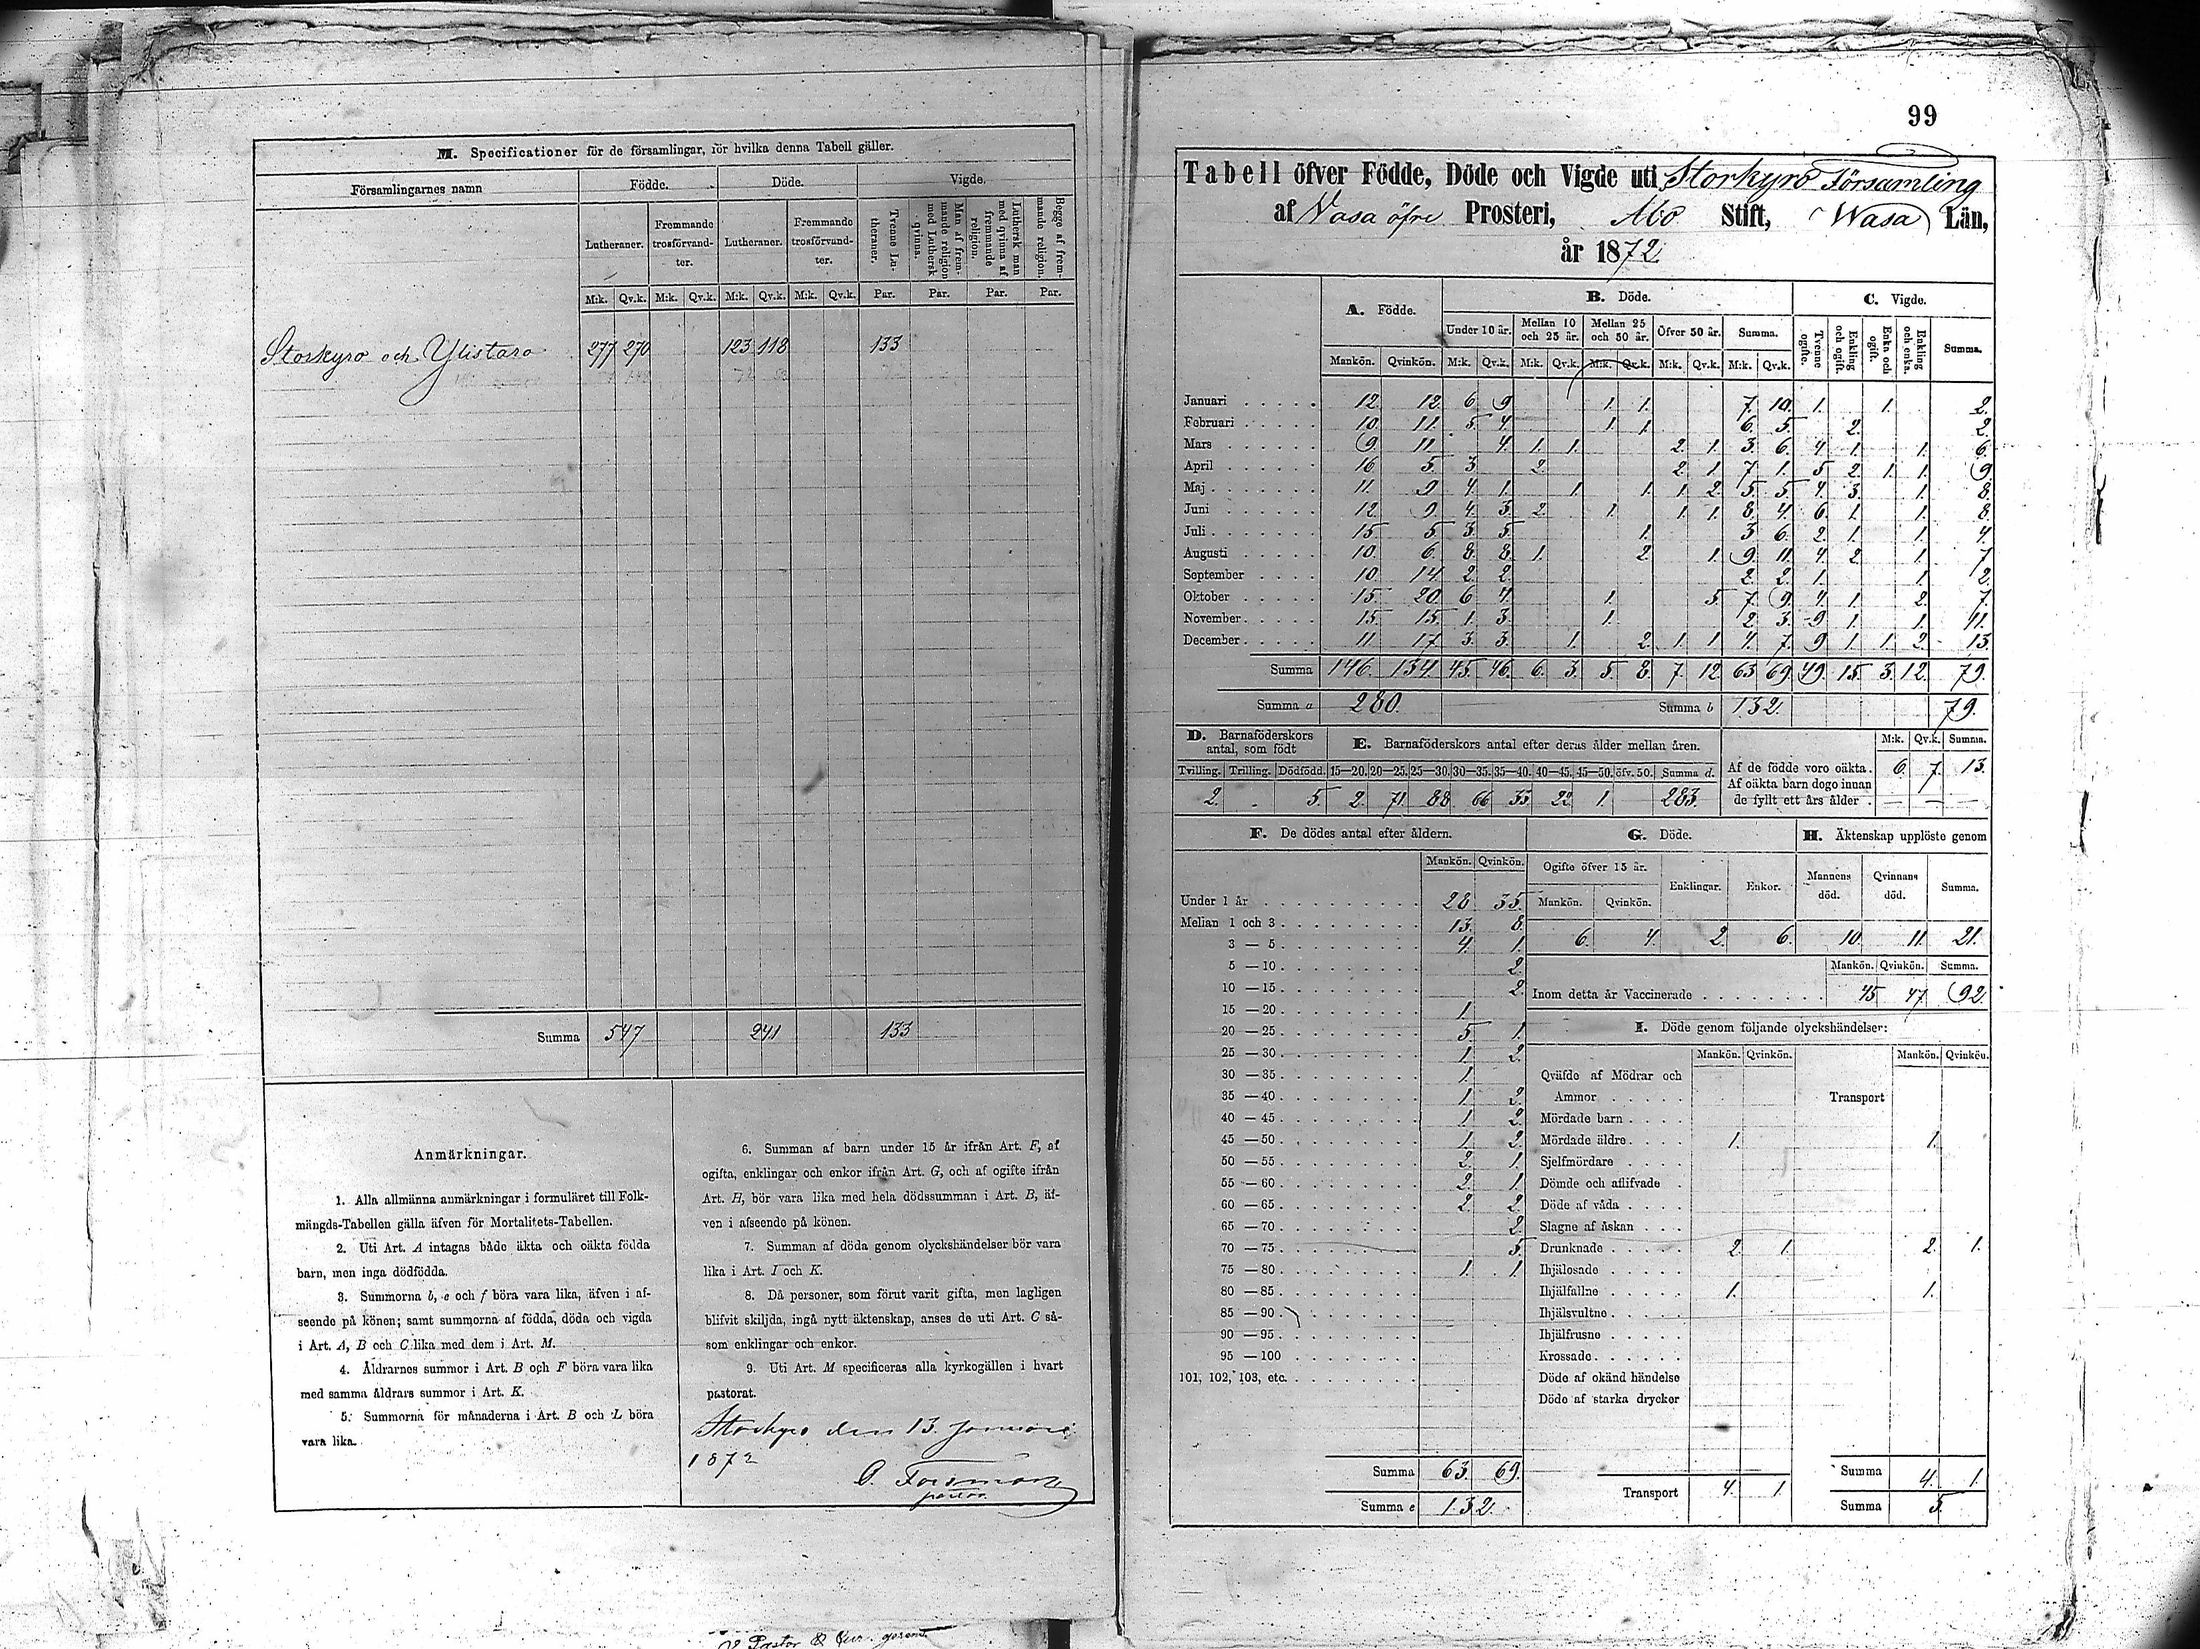 M. Specificationer för de församlingar, för hvilka denna Tabell gäller.
Församlingarnes namn Födde. Döde. Vigde.
Lutheraner. Fremmande trosförvandter. Lutheraner. Fremmande trosförvandter. Tvenne Lutheraner. Man af fremmande religion med Luthersk qvinna. Luthersk man med qvinna af fremmande religion. Begge af fremmande religion.
M:k. Qv.k. M:k. Qv.k. M:k. Qv.k. M:k. Qv.k. Par. Par. Par. Par.
Storkyro och Ylistaro 277 270 123 118 133
Summa 547 241 133
Anmärkningar.
1. Alla allmänna anmärkningar i formuläret till Folk-
mängds-Tabellen gälla äfven för Mortalitets-Tabellen.
2. Uti Art. A intagas både äkta och oäkta födda
barn, men inga dödfödda.
3. Summorna b, e och f böra vara lika, äfven i af-
seende på könen; samt summorna af födda, döda och vigda
i Art. A, B och C lika med dem i Art. M.
4. Åldrarnes summor i Art. B och F böra vara lika
med samma åldrars summor i Art. K.
5. Summorna för månaderna i Art. B och L böra
vara lika.
6. Summan af barn under 15 år ifrån Art. F, af
ogifta, enklingar och enkor ifrån Art. G, och af ogifte ifrån
Art. H, bör vara lika med hela dödssumman i Art. B, äf-
ven i afseende på könen.
7. Summan af döda genom olyckshändelser bör vara
lika i Art. I och K.
8. Då personer, som förut varit gifta, men lagligen
blifvit skiljda, ingå nytt äktenskap, anses de uti Art. C så-
som enklingar och enkor.
9. Uti Art. M specificeras alla kyrkogällen i hvart
pastorat.
Storkyro den 13 Januari
1872
G. Forsman
pastor.
99
Tabell öfver Födde, Döde och Vigde uti Storkyro Församling
af Vasa öfre Prosteri, Åbo Stift, Wasa Län,
år 1872
A. Födde. B. Döde. C. Vigde.
Under 10 år. Mellan 10 och 25 år. Mellan 25 och 50 år. Öfver 50 år. Summa. Tvenne ogifte. Enkling och ogift. Enka och ogift. Enkling och enka. Summa.
Mankön. Qvinkön. M:k. Qv.k. M:k. Qv.k. M:k. Qv.k. M:k. Qv.k. M:k. Qv.k.
Januari 12. 12. 6. 9. 1. 1. 7. 10. 1. 1. 2.
Februari 10. 11. 5. 4. 1. 1. 6. 5. 2. 2.
Mars 9. 11. 4. 1. 1. 2. 1. 3. 6. 4. 1. 1. 6.
April 16 5. 3. 2. 2. 1. 7. 1. 5. 2. 1. 1. 9.
Maj 11. 9. 4. 1. 1. 1. 1. 2. 5. 5. 4. 3. 1. 8.
Juni 12. 9. 4. 3. 2. 1. 1. 1. 8. 4. 6. 1. 1. 8.
Juli 15. 5. 3. 5. 1. 3. 6. 2. 1. 1. 4.
Augusti 10. 6. 8. 8. 1. 2. 1. 9. 11. 4. 2. 1. 7.
September 10. 14. 2. 2. 2. 2. 1. 1. 2.
Oktober 15. 20. 6. 4. 1. 5. 7. 9. 4. 1. 2. 7.
November 15. 15. 1. 3. 1. 2. 3. 9. 1. 1. 11.
December 11. 17. 3. 3. 1. 2. 1. 1. 4. 7. 9. 1. 1. 2. 13.
Summa 146. 134. 45. 46. 6. 3. 5. 8. 7. 12. 63 69. 49. 15. 3. 12. 79.
Summa a 280. Summa b 132. 79.
D. Barnaföderskors antal, som födt E. Barnaföderskors antal efter deras ålder mellan åren. M:k. Qv.k. Summa.
Tvilling. Trilling. Dödfödd. 15—20. 20—25. 25—30. 30—35. 35—40. 40—45. 45—50. öfv. 50. Summa d.
2. 5. 2. 71. 88. 66 33. 22. 1. 283.
Af de födde voro oäkta. 6. 7. 13.
Af oäkta barn dogo innan
de fyllt ett års ålder. — — —
F. De dödes antal efter åldern.
Mankön. Qvinkön.
Under 1 år 28. 35.
Mellan 1 och 3 13. 8.
3 — 5 4. 1.
5 — 10 2.
10 — 15 2.
15 — 20 1.
20 — 25 5. 1.
25 — 30 1. 2.
30 — 35 1.
35 — 40 1. 2.
40 — 45 1. 2.
45 — 50 1. 2.
50 — 55 2. 1.
55 — 60 2. 1.
60 — 65 2. 2.
65 — 70 2.
70 — 75 5.
75 — 80 1. 1.
80 — 85
85 — 90
90 — 95
95 — 100
101, 102, 103, etc.
Summa 63. 69.
Summa e 132.
G. Döde.
Ogifte öfver 15 år. Enklingar. Enkor.
Mankön. Qvinkön.
6. 4. 2. 6.
H. Äktenskap upplöste genom
Mannens död. Qvinnans död. Summa.
10. 11. 21.
Mankön. Qvinkön. Summa.
Inom detta år Vaccinerade 45 47 92.
I. Döde genom följande olyckshändelser:
Mankön. Qvinkön. Mankön. Qvinkön.
Qväfde af Mödrar och
Ammor Transport
Mördade barn
Mördade äldre 1. 1.
Sjelfmördare
Dömde och aflifvade
Döde af våda
Slagne af åskan
Drunknade 2. 1. 2. 1.
Ihjälosade
Ihjälfallne 1. 1.
Ihjälsvultne
Ihjälfrusne
Krossade
Döde af okänd händelse
Döde af starka drycker
Transport 4. 1. Summa 4. 1.
Summa 5.